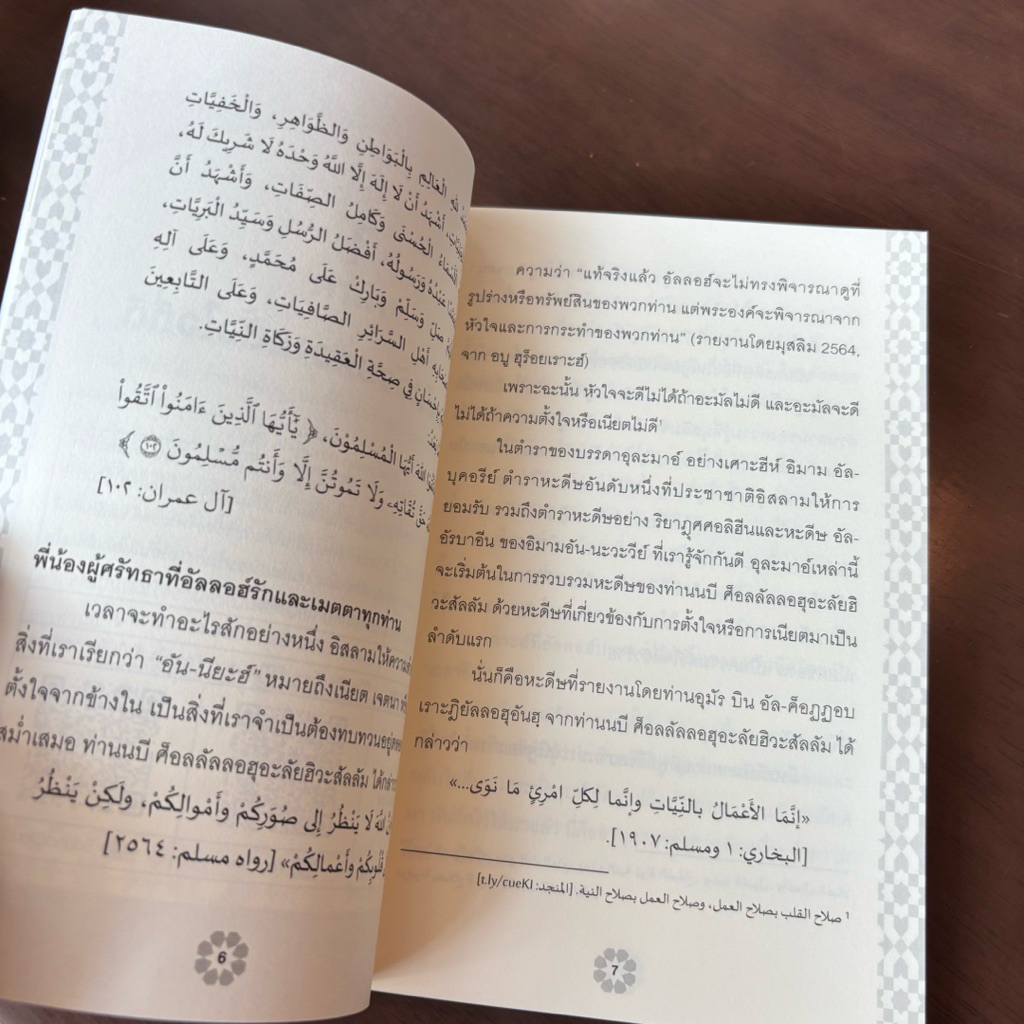 لله الْعَالِمِ بِالْبَوَاطِنِ وَالظَّوَاهِرِ، وَالْخَفِيَّاتِ
أَشْهَدُ أَنْ لَا إِلَهَ إِلَّا اللَّهُ وَحْدَهُ لَا شَرِيكَ لَهُ،
الْحُسْنَى وَكَامِلُ الصِّفَاتِ، وَأَشْهَدُ أَنَّ
عَبْدُهُ وَرَسُولُهُ، أَفْضَلُ الرُّسُلِ وَسَيِّدُ الْبَرِيَّاتِ،
صَلِّ وَسَلِّمْ وَبَارِكْ عَلَى مُحَمَّدٍ، وَعَلَى آلِهِ
أَهْلِ السَّرَائِرِ الصَّافِيَاتِ، وَعَلَى التَّابِعِينَ
بِإِحْسَانٍ فِي صِحَّةِ الْعَقِيدَةِ وَزَكَاةِ النِّيَّاتِ.
اللهَ أَيُّهَا الْمُسْلِمُوْنَ، ﴿ يَٰٓأَيُّهَا ٱلَّذِينَ ءَامَنُواْ ٱتَّقُواْ
تُقَاتِهِۦ وَلَا تَمُوتُنَّ إِلَّا وَأَنتُم مُّسْلِمُونَ ١٠٢ ﴾
[آل عمران: ١٠٢]
พี่น้องผู้ศรัทธาที่อัลลอฮ์รักและเมตตาทุกท่าน
เวลาจะทำอะไรสักอย่างหนึ่ง อิสลามให้ความ
สิ่งที่เราเรียกว่า “อัน-นียะฮ์” หมายถึงเนียต เจตนา
ตั้งใจจากข้างใน เป็นสิ่งที่เราจำเป็นต้องทบทวนอยู่
สม่ำเสมอ ท่านนบี ศ็อลลัลลอฮุอะลัยฮิวะสัลลัม ได้
اللهَ لَا يَنْظُرُ إِلى صُوَرِكُمْ وَأَمْوالِكُمْ، ولَكِنْ يَنْظُرُ
قُلُوبِكُمْ وَأَعْمالِكُمْ» [رواه مسلم: ٢٥٦٤]
6
ความว่า “แท้จริงแล้ว อัลลอฮ์จะไม่ทรงพิจารณาดูที่
รูปร่างหรือทรัพย์สินของพวกท่าน แต่พระองค์จะพิจารณาจาก
หัวใจและการกระทำของพวกท่าน” (รายงานโดยมุสลิม 2564,
จาก อบู ฮุร็อยเราะฮ์)
เพราะฉะนั้น หัวใจจะดีไม่ได้ถ้าอะมัลไม่ดี และอะมัลจะดี
ไม่ได้ถ้าความตั้งใจหรือเนียตไม่ดี¹
ในตำราของบรรดาอุละมาอ์ อย่างเศาะฮีห์ อิมาม อัล-
บุคอรีย์ ตำราหะดีษอันดับหนึ่งที่ประชาชาติอิสลามให้การ
ยอมรับ รวมถึงตำราหะดีษอย่าง ริยาฎุศศอลิฮีนและหะดีษ อัล-
อัรบาอีน ของอิมามอัน-นะวะวีย์ ที่เรารู้จักกันดี อุละมาอ์เหล่านี้
จะเริ่มต้นในการรวบรวมหะดีษของท่านนบี ศ็อลลัลลอฮุอะลัยฮิ
วะสัลลัม ด้วยหะดีษที่เกี่ยวข้องกับการตั้งใจหรือการเนียตมาเป็น
ลำดับแรก
นั่นก็คือหะดีษที่รายงานโดยท่านอุมัร บิน อัล-ค็อฏฏอบ
เราะฎิยัลลอฮุอันฮุ จากท่านนบี ศ็อลลัลลอฮุอะลัยฮิวะสัลลัม ได้
กล่าวว่า
«إنَّمَا الأعْمَالُ بالنِّيَّاتِ وإنَّما لِكلِّ امْرِئٍ مَا نَوَى...»
[البخاري: ١ ومسلم: ١٩٠٧].
¹ صلاح القلب بصلاح العمل، وصلاح العمل بصلاح النية. [المنجد: t.ly/cueKl]
7